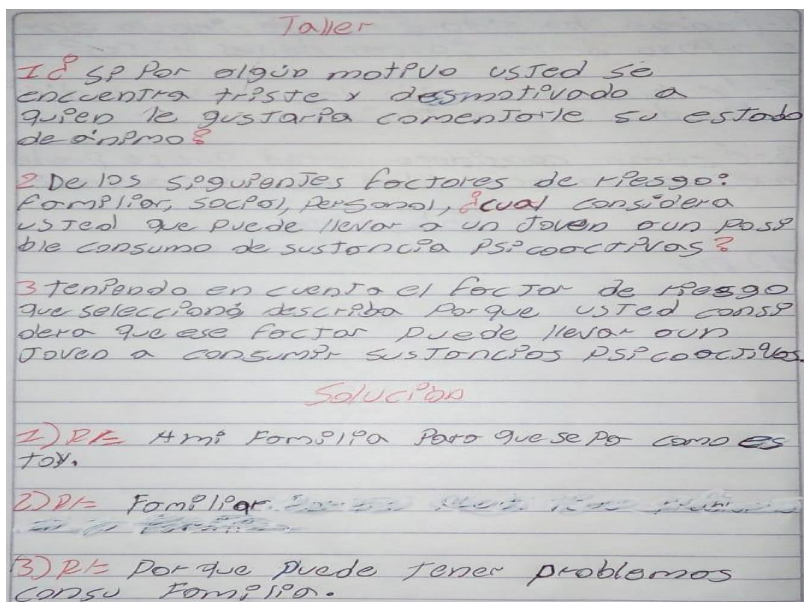 Taller
1 ¿ Si Por algún motivo usted se
encuentra triste y desmotivado a
quien le gustaria comentarle su estado
de animo?
2 De los siguientes factores de riesgo:
Familiar, social, personal, ¿cual considera
usted que puede llevar a un Joven aun posi
ble consumo de sustancia Psicoactivas?
3 teniendo en cuenta el factor de riesgo
que seleccionó, describa porque usted consi
dera que ese factor puede llevar aun
Joven a consumir sustancias psicoactivas.
Solución
1) R/= Ami Familia Para que sepa como es
toy.
2) R/= Familiar
3) R/= Porque puede tener problemas
consu Familia.